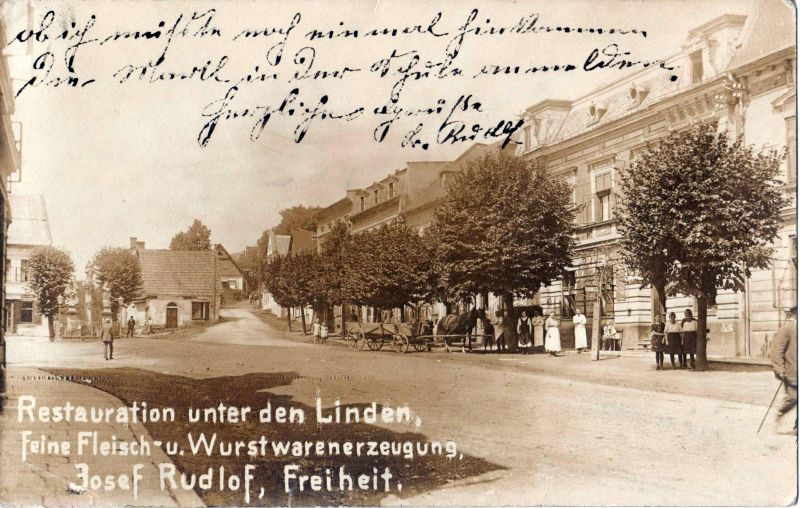 ob ich müßte noch einmal hinkommen
die Maril in der Schule anmelden.
Herzliche Grüße
Rudolf
Restauration unter den Linden,
feine Fleisch- u. Wurstwarenerzeugung,
Josef Rudlof, Freiheit.